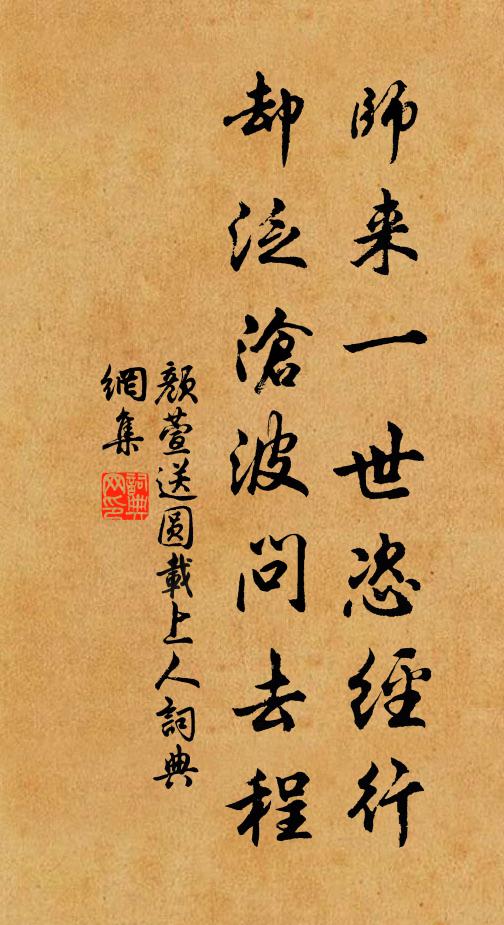 師来一世恣經行
却泛滄波問去程
顏萱送圓載上人詞典
網集
詞典
网印